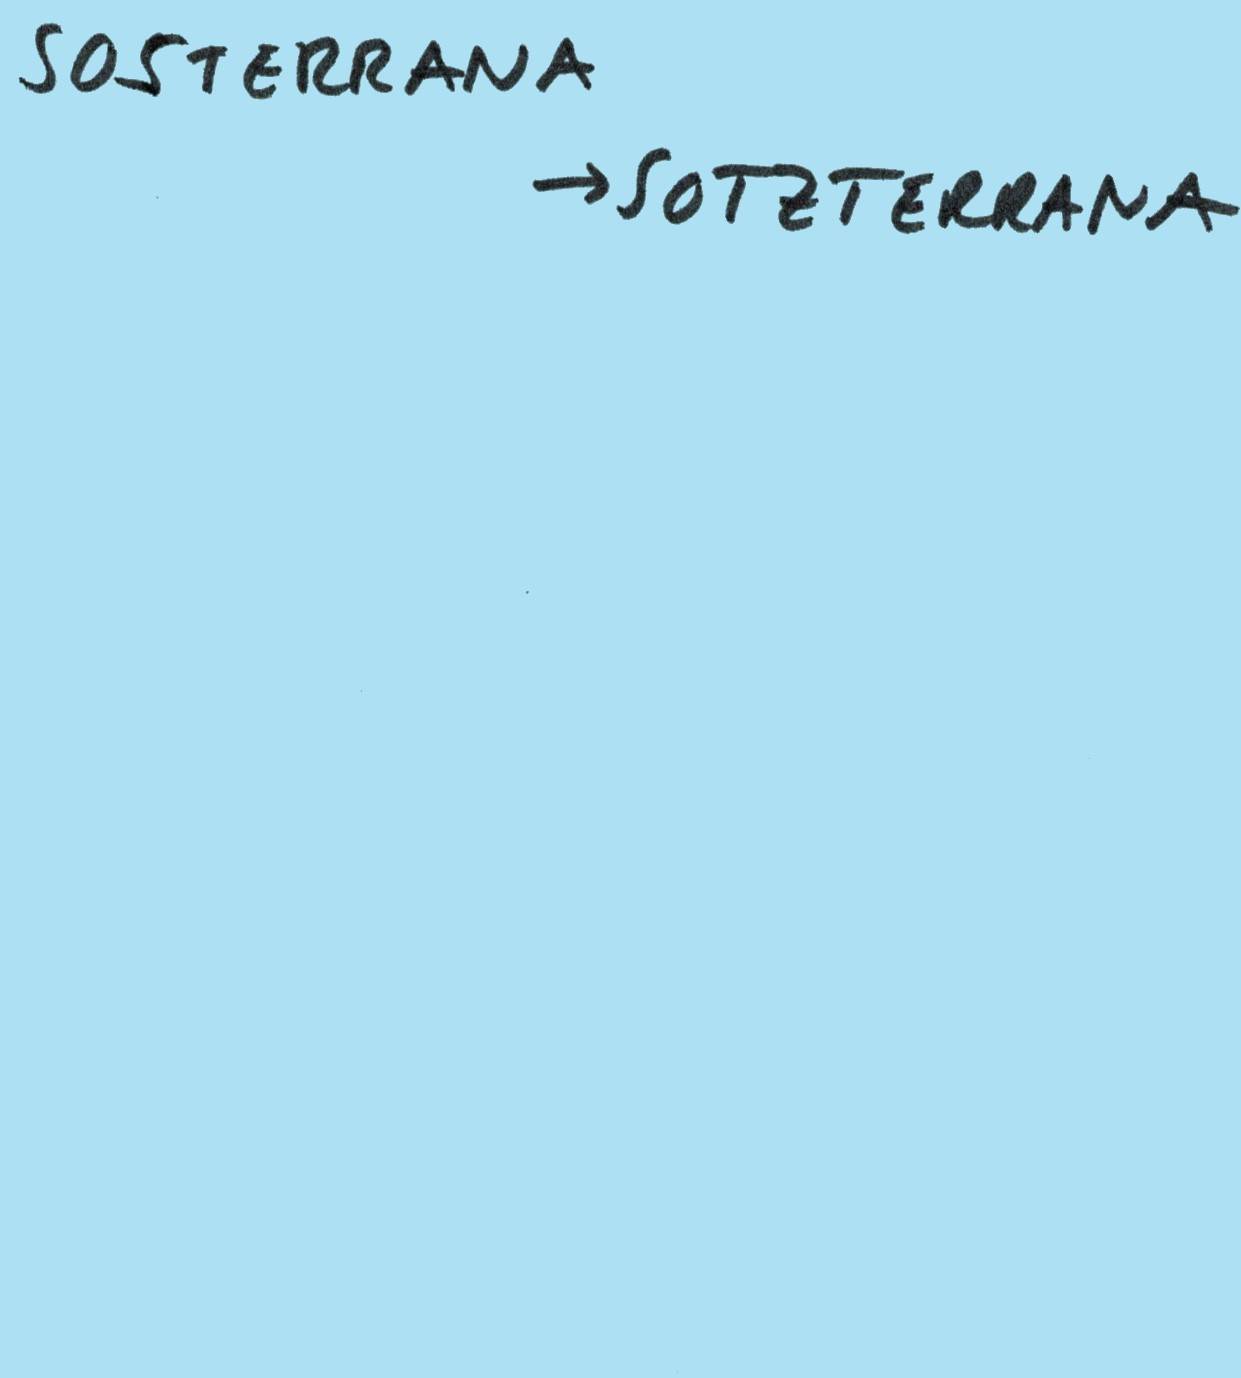 SOSTERRANA
→SOTZTERRANA